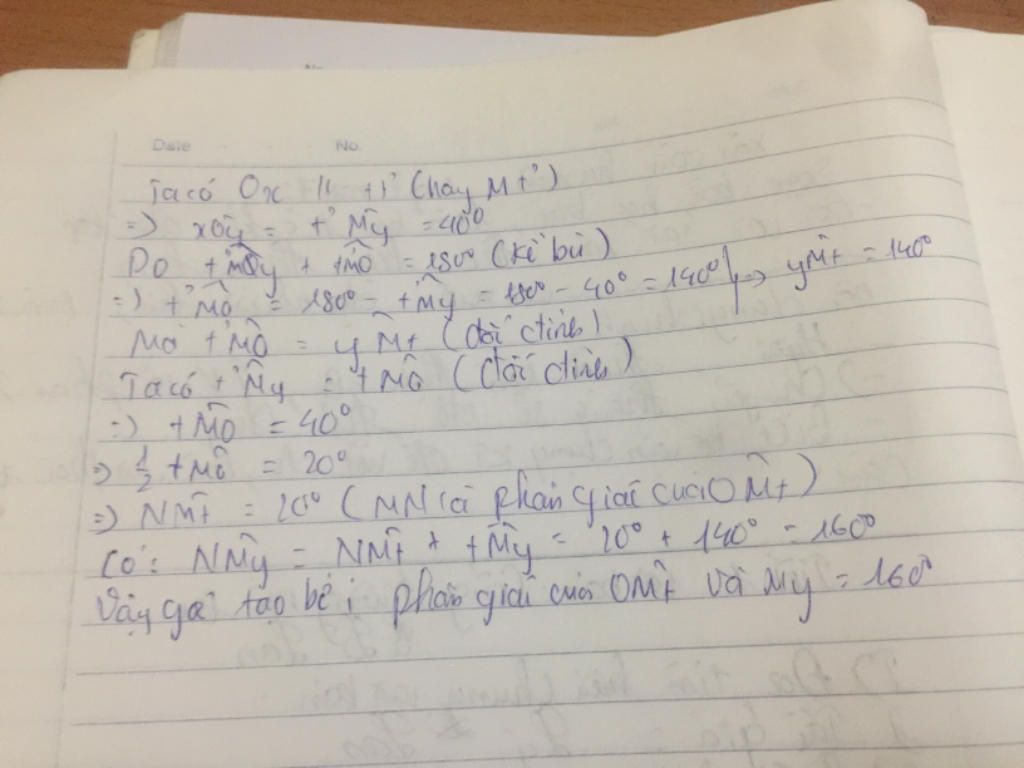 Date No.
Ta có Ox // tt' (hay Mt')
=) xÔy = t'M̂y = 40°
Do t'M̂y + t'M̂O = 180° (kề bù)
=) t'M̂O = 180° - t'M̂y = 180° - 40° = 140° } => yM̂t = 140°
Mà t'M̂O = yM̂t (đối đỉnh)
Ta có t'M̂y = tM̂O (đối đỉnh)
=) tM̂O = 40°
=) 1/2 tM̂O = 20°
=) NM̂t = 20° (MN là phân giác của OM̂t)
Có: NM̂y = NM̂t + tM̂y = 20° + 140° = 160°
Vậy góc tạo bởi phân giác của OM̂t và My = 160°